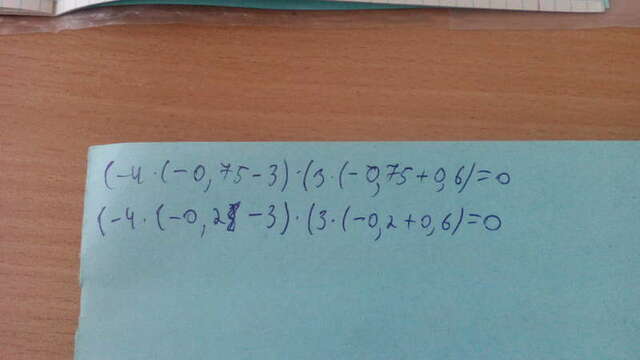 (-4·(-0,75-3)·(3·(-0,75+0,6)=0
(-4·(-0,2-3)·(3·(-0,2+0,6)=0